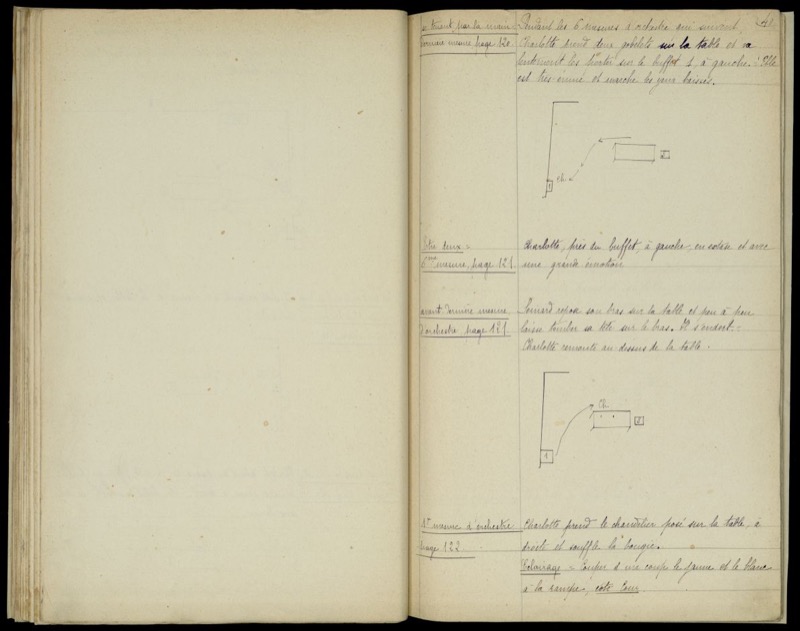 se tenant par la main
dernière mesure page 120.
Pendant les 6 mesures d'orchestre qui suivent,
Charlotte prend deux gobelets sur la table et va
lentement les porter sur le buffet 1, à gauche. Elle
est très émue et marche les yeux baissés.
1
Ch.
2
être deux =
6me mesure, page 121.
Charlotte, près du buffet, à gauche, en extase et avec
une grande émotion
avant dernière mesure
d'orchestre page 121.
pose son bras sur la table et peu à peu
laisse tomber sa tête sur le bras. Il s'endort.
Charlotte remonte au dessus de la table.
Ch.
1
2
1re mesure d'orchestre
page 122.
Charlotte prend le chandelier posé sur la table, à
droite et souffle la bougie.
Eclairage = Couper d'un coup le jaune et le blanc
à la rampe, côté Cour.